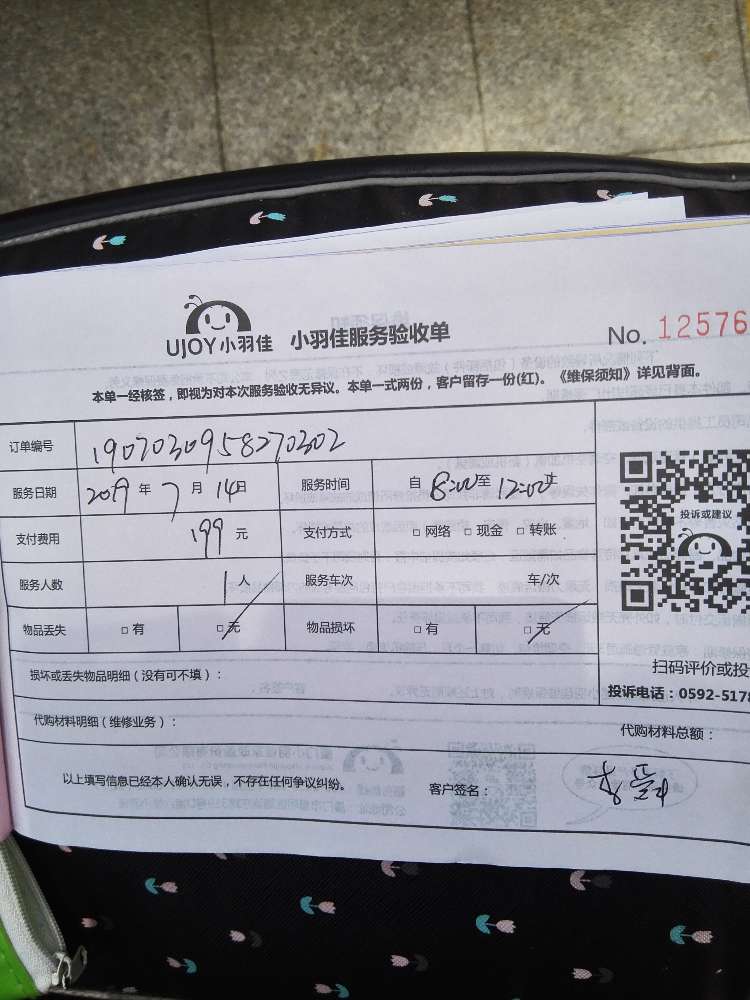 UJOY小羽佳 小羽佳服务验收单 No. 12576
本单一经核签，即视为对本次服务验收无异议。本单一式两份，客户留存一份(红)。《维保须知》详见背面。
订单编号 1907030958270302
服务日期 2019 年 7 月 14日 服务时间 自 8:00至 12:00止
支付费用 199 元 支付方式 □ 网络 □ 现金 □ 转账
投诉或建议
服务人数 1 人 服务车次 车/次
物品丢失 □ 有 □ 无 物品损坏 □ 有 □ 无
扫码评价或投
损坏或丢失物品明细（没有可不填）：
投诉电话：0592-5178
代购材料明细（维修业务）：
代购材料总额：
以上填写信息已经本人确认无误，不存在任何争议纠纷。 客户签名：